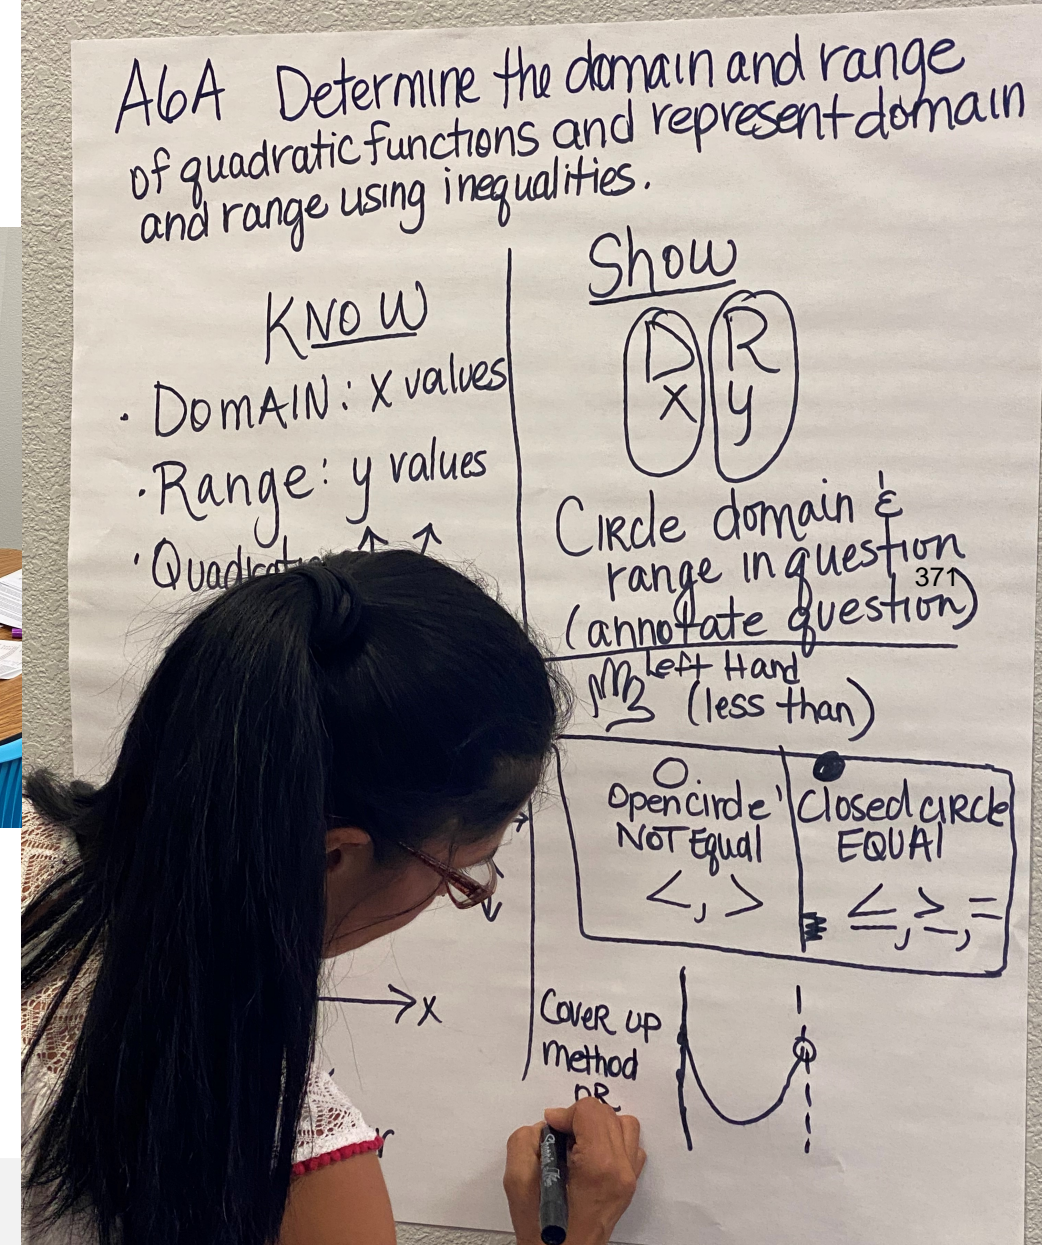 A6A Determine the domain and range
of quadratic functions and represent domain
and range using inequalities.
KNOW
· DOMAIN: X values
· Range: y values
·
Show
D R
X y
CIRcle domain &
range in question
371
(annotate question)
left Hand
(less than)
Open circle
NOT Equal
<, >
Closed ciRcle
EQUAl
≤, ≥, =
X
Cover up
method
OR